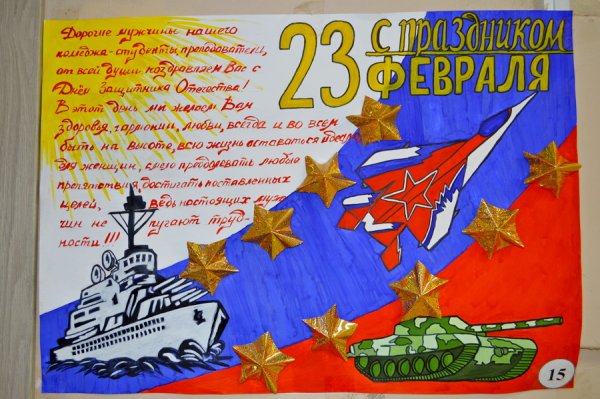 Дорогие мужчины нашего
колледжа - студенты, преподаватели,
от всей души поздравляем Вас с
Днём Защитника Отечества!
В этот день мы желаем Вам
здоровья, гармонии, любви, всегда и во всем
быть на высоте, всю жизнь оставаться
для женщин, смело преодолевать любые
препятствия, достигать поставленных
целей, ведь настоящих муж
чин не пугают труд-
ности !!!
23 с праздником
ФЕВРАЛЯ
15